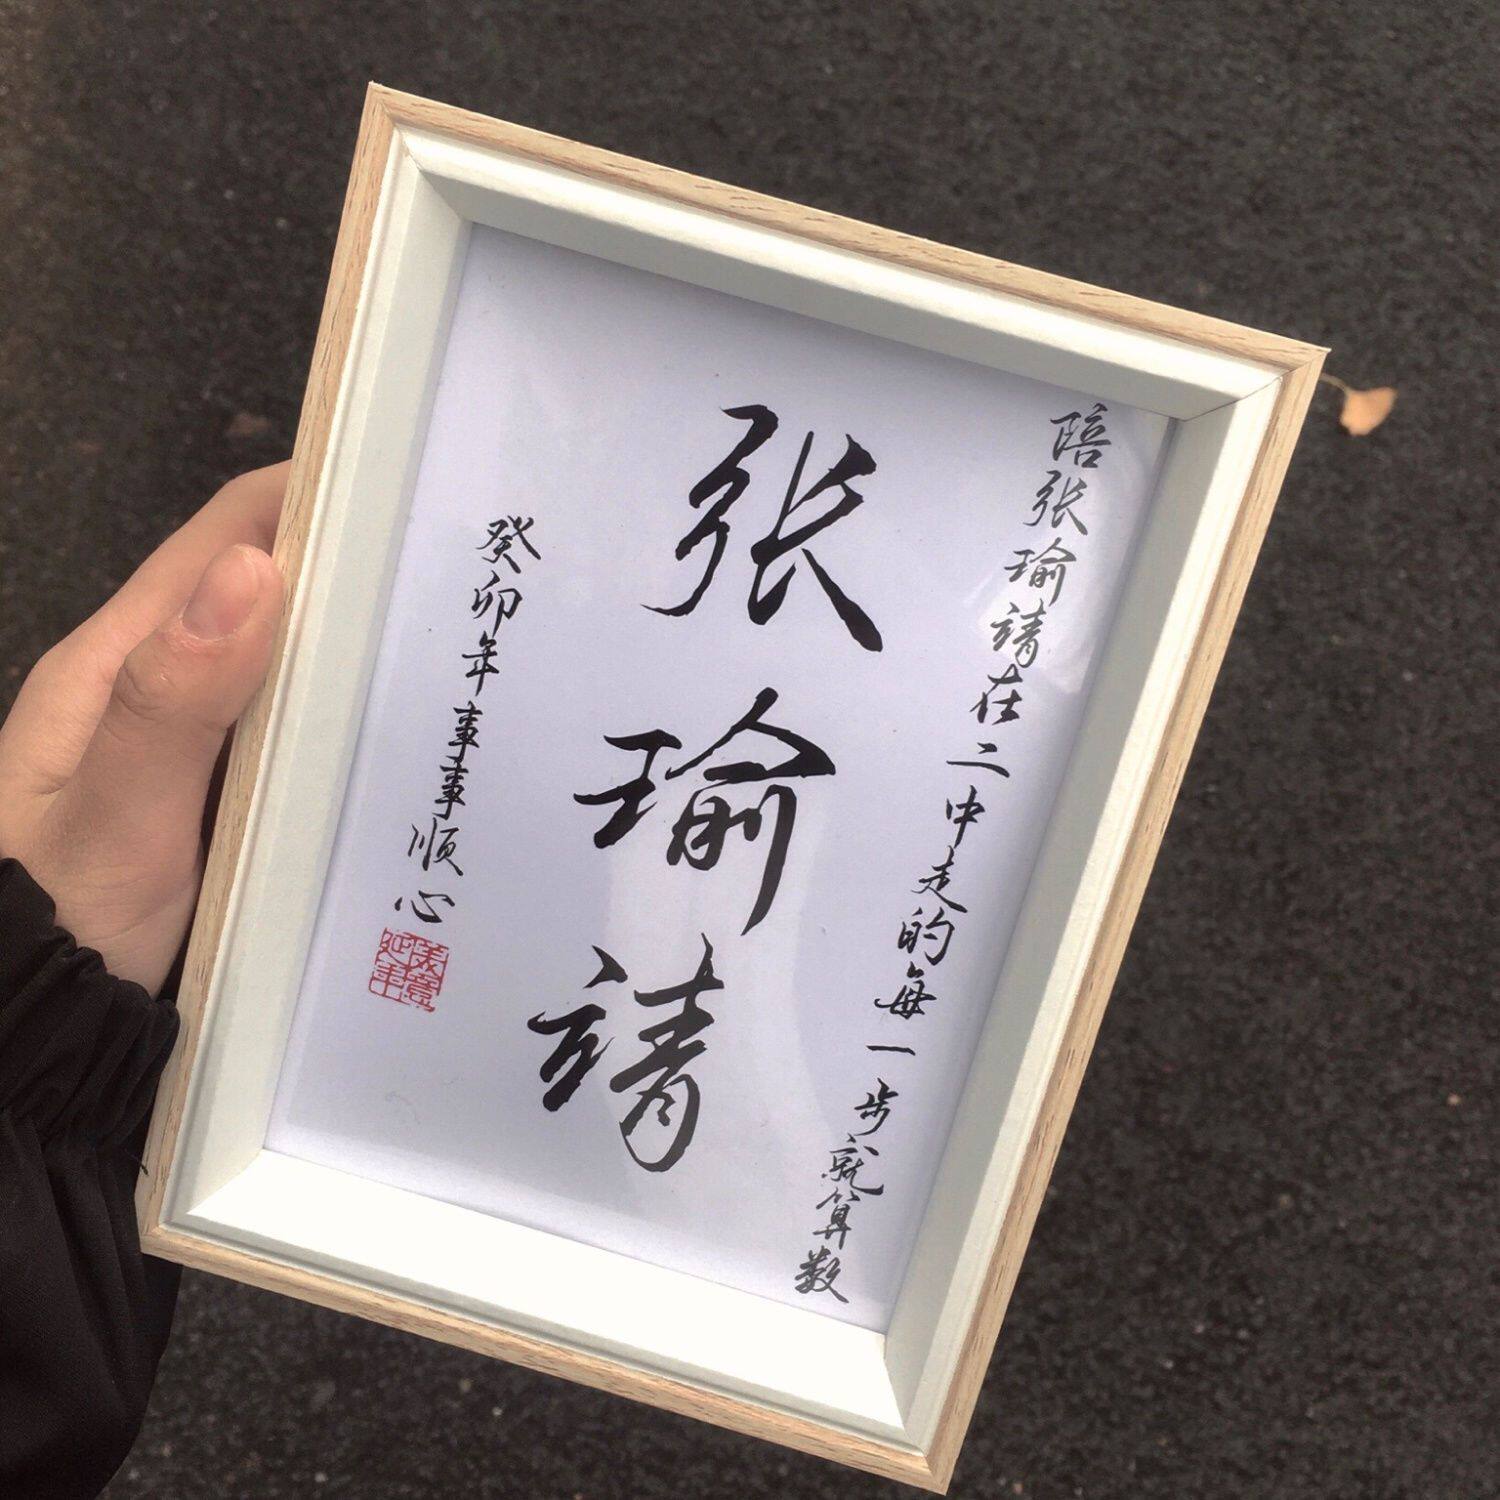 陪张瑜靖在二中走的每一步就算数
张瑜靖
癸卯年事事顺心